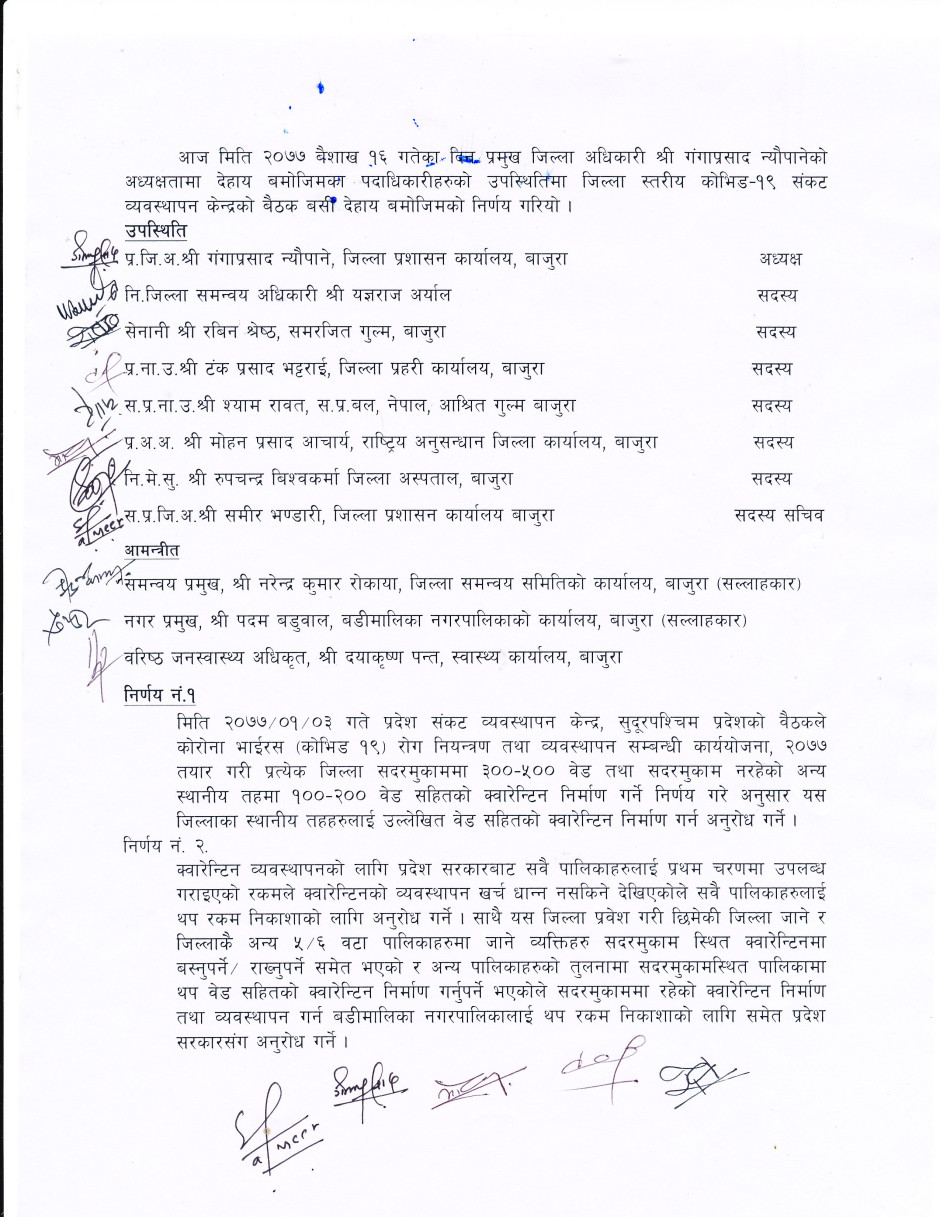 आज मिति २०७७ बैशाख १६ गतेका दिन प्रमुख जिल्ला अधिकारी श्री गंगाप्रसाद न्यौपानेको
अध्यक्षतामा देहाय बमोजिमका पदाधिकारीहरुको उपस्थितिमा जिल्ला स्तरीय कोभिड-१९ संकट
व्यवस्थापन केन्द्रको बैठक बसी देहाय बमोजिमको निर्णय गरियो ।
उपस्थिति
प्र.जि.अ.श्री गंगाप्रसाद न्यौपाने, जिल्ला प्रशासन कार्यालय, बाजुरा अध्यक्ष
नि.जिल्ला समन्वय अधिकारी श्री यज्ञराज अर्याल सदस्य
सेनानी श्री रबिन श्रेष्ठ, समरजित गुल्म, बाजुरा सदस्य
प्र.ना.उ.श्री टंक प्रसाद भट्टराई, जिल्ला प्रहरी कार्यालय, बाजुरा सदस्य
स.प्र.ना.उ.श्री श्याम रावत, स.प्र.बल, नेपाल, आश्रित गुल्म बाजुरा सदस्य
प्र.अ.अ. श्री मोहन प्रसाद आचार्य, राष्ट्रिय अनुसन्धान जिल्ला कार्यालय, बाजुरा सदस्य
नि.मे.सु. श्री रुपचन्द्र बिश्वकर्मा जिल्ला अस्पताल, बाजुरा सदस्य
स.प्र.जि.अ.श्री समीर भण्डारी, जिल्ला प्रशासन कार्यालय बाजुरा सदस्य सचिव
आमन्त्रीत
समन्वय प्रमुख, श्री नरेन्द्र कुमार रोकाया, जिल्ला समन्वय समितिको कार्यालय, बाजुरा (सल्लाहकार)
नगर प्रमुख, श्री पदम बडुवाल, बडीमालिका नगरपालिकाको कार्यालय, बाजुरा (सल्लाहकार)
वरिष्ठ जनस्वास्थ्य अधिकृत, श्री दयाकृष्ण पन्त, स्वास्थ्य कार्यालय, बाजुरा
निर्णय नं.१
मिति २०७७/०१/०३ गते प्रदेश संकट व्यवस्थापन केन्द्र, सुदूरपश्चिम प्रदेशको वैठकले
कोरोना भाईरस (कोभिड १९) रोग नियन्त्रण तथा व्यवस्थापन सम्बन्धी कार्ययोजना, २०७७
तयार गरी प्रत्येक जिल्ला सदरमुकाममा ३००-५०० वेड तथा सदरमुकाम नरहेको अन्य
स्थानीय तहमा १००-२०० वेड सहितको क्वारेन्टिन निर्माण गर्ने निर्णय गरे अनुसार यस
जिल्लाका स्थानीय तहहरुलाई उल्लेखित वेड सहितको क्वारेन्टिन निर्माण गर्न अनुरोध गर्ने ।
निर्णय नं. २.
क्वारेन्टिन व्यवस्थापनको लागि प्रदेश सरकारबाट सवै पालिकाहरुलाई प्रथम चरणमा उपलब्ध
गराइएको रकमले क्वारेन्टिनको व्यवस्थापन खर्च धान्न नसकिने देखिएकोले सवै पालिकाहरुलाई
थप रकम निकाशाको लागि अनुरोध गर्ने । साथै यस जिल्ला प्रवेश गरी छिमेकी जिल्ला जाने र
जिल्लाकै अन्य ५/६ वटा पालिकाहरुमा जाने व्यक्तिहरु सदरमुकाम स्थित क्वारेन्टिनमा
बस्नुपर्ने/ राख्नुपर्ने समेत भएको र अन्य पालिकाहरुको तुलनामा सदरमुकामस्थित पालिकामा
थप वेड सहितको क्वारेन्टिन निर्माण गर्नुपर्ने भएकोले सदरमुकाममा रहेको क्वारेन्टिन निर्माण
तथा व्यवस्थापन गर्न बडीमालिका नगरपालिकालाई थप रकम निकाशाको लागि समेत प्रदेश
सरकारसंग अनुरोध गर्ने ।